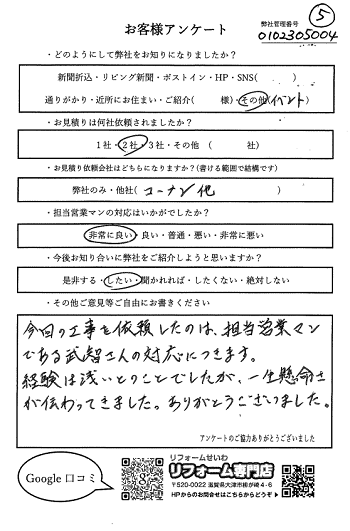 ⑤
弊社管理番号
0102305004
お客様アンケート
・どのようにして弊社をお知りになりましたか？
新聞折込・リビング新聞・ポストイン・HP・SNS(　　　)
通りがかり・近所にお住まい・ご紹介(　　　様)・その他(イベント)
・お見積りは何社依頼されましたか？
1社・2社・3社・その他　(　　　社)
・お見積り依頼会社はどちらになりますか？(書ける範囲で結構です)
弊社のみ・他社(　コーナン 他　)
・担当営業マンの対応はいかがでしたか？
非常に良い・良い・普通・悪い・非常に悪い
・今後お知り合いに弊社をご紹介しようと思いますか？
是非する・したい・聞かれれば・したくない・絶対しない
・その他ご意見等ご自由にお書きください
今回の工事を依頼したのは、担当営業マン
である武智さんの対応につきます。
経験は浅いとのことでしたが、一生懸命さ
が伝わってきました。ありがとうございました。
アンケートのご協力ありがとうございました
Google 口コミ
リフォームせいわ
リフォーム専門店
〒520-0022 滋賀県大津市柳が崎4-6
HPからのお問合せはこちらからどうぞ▶